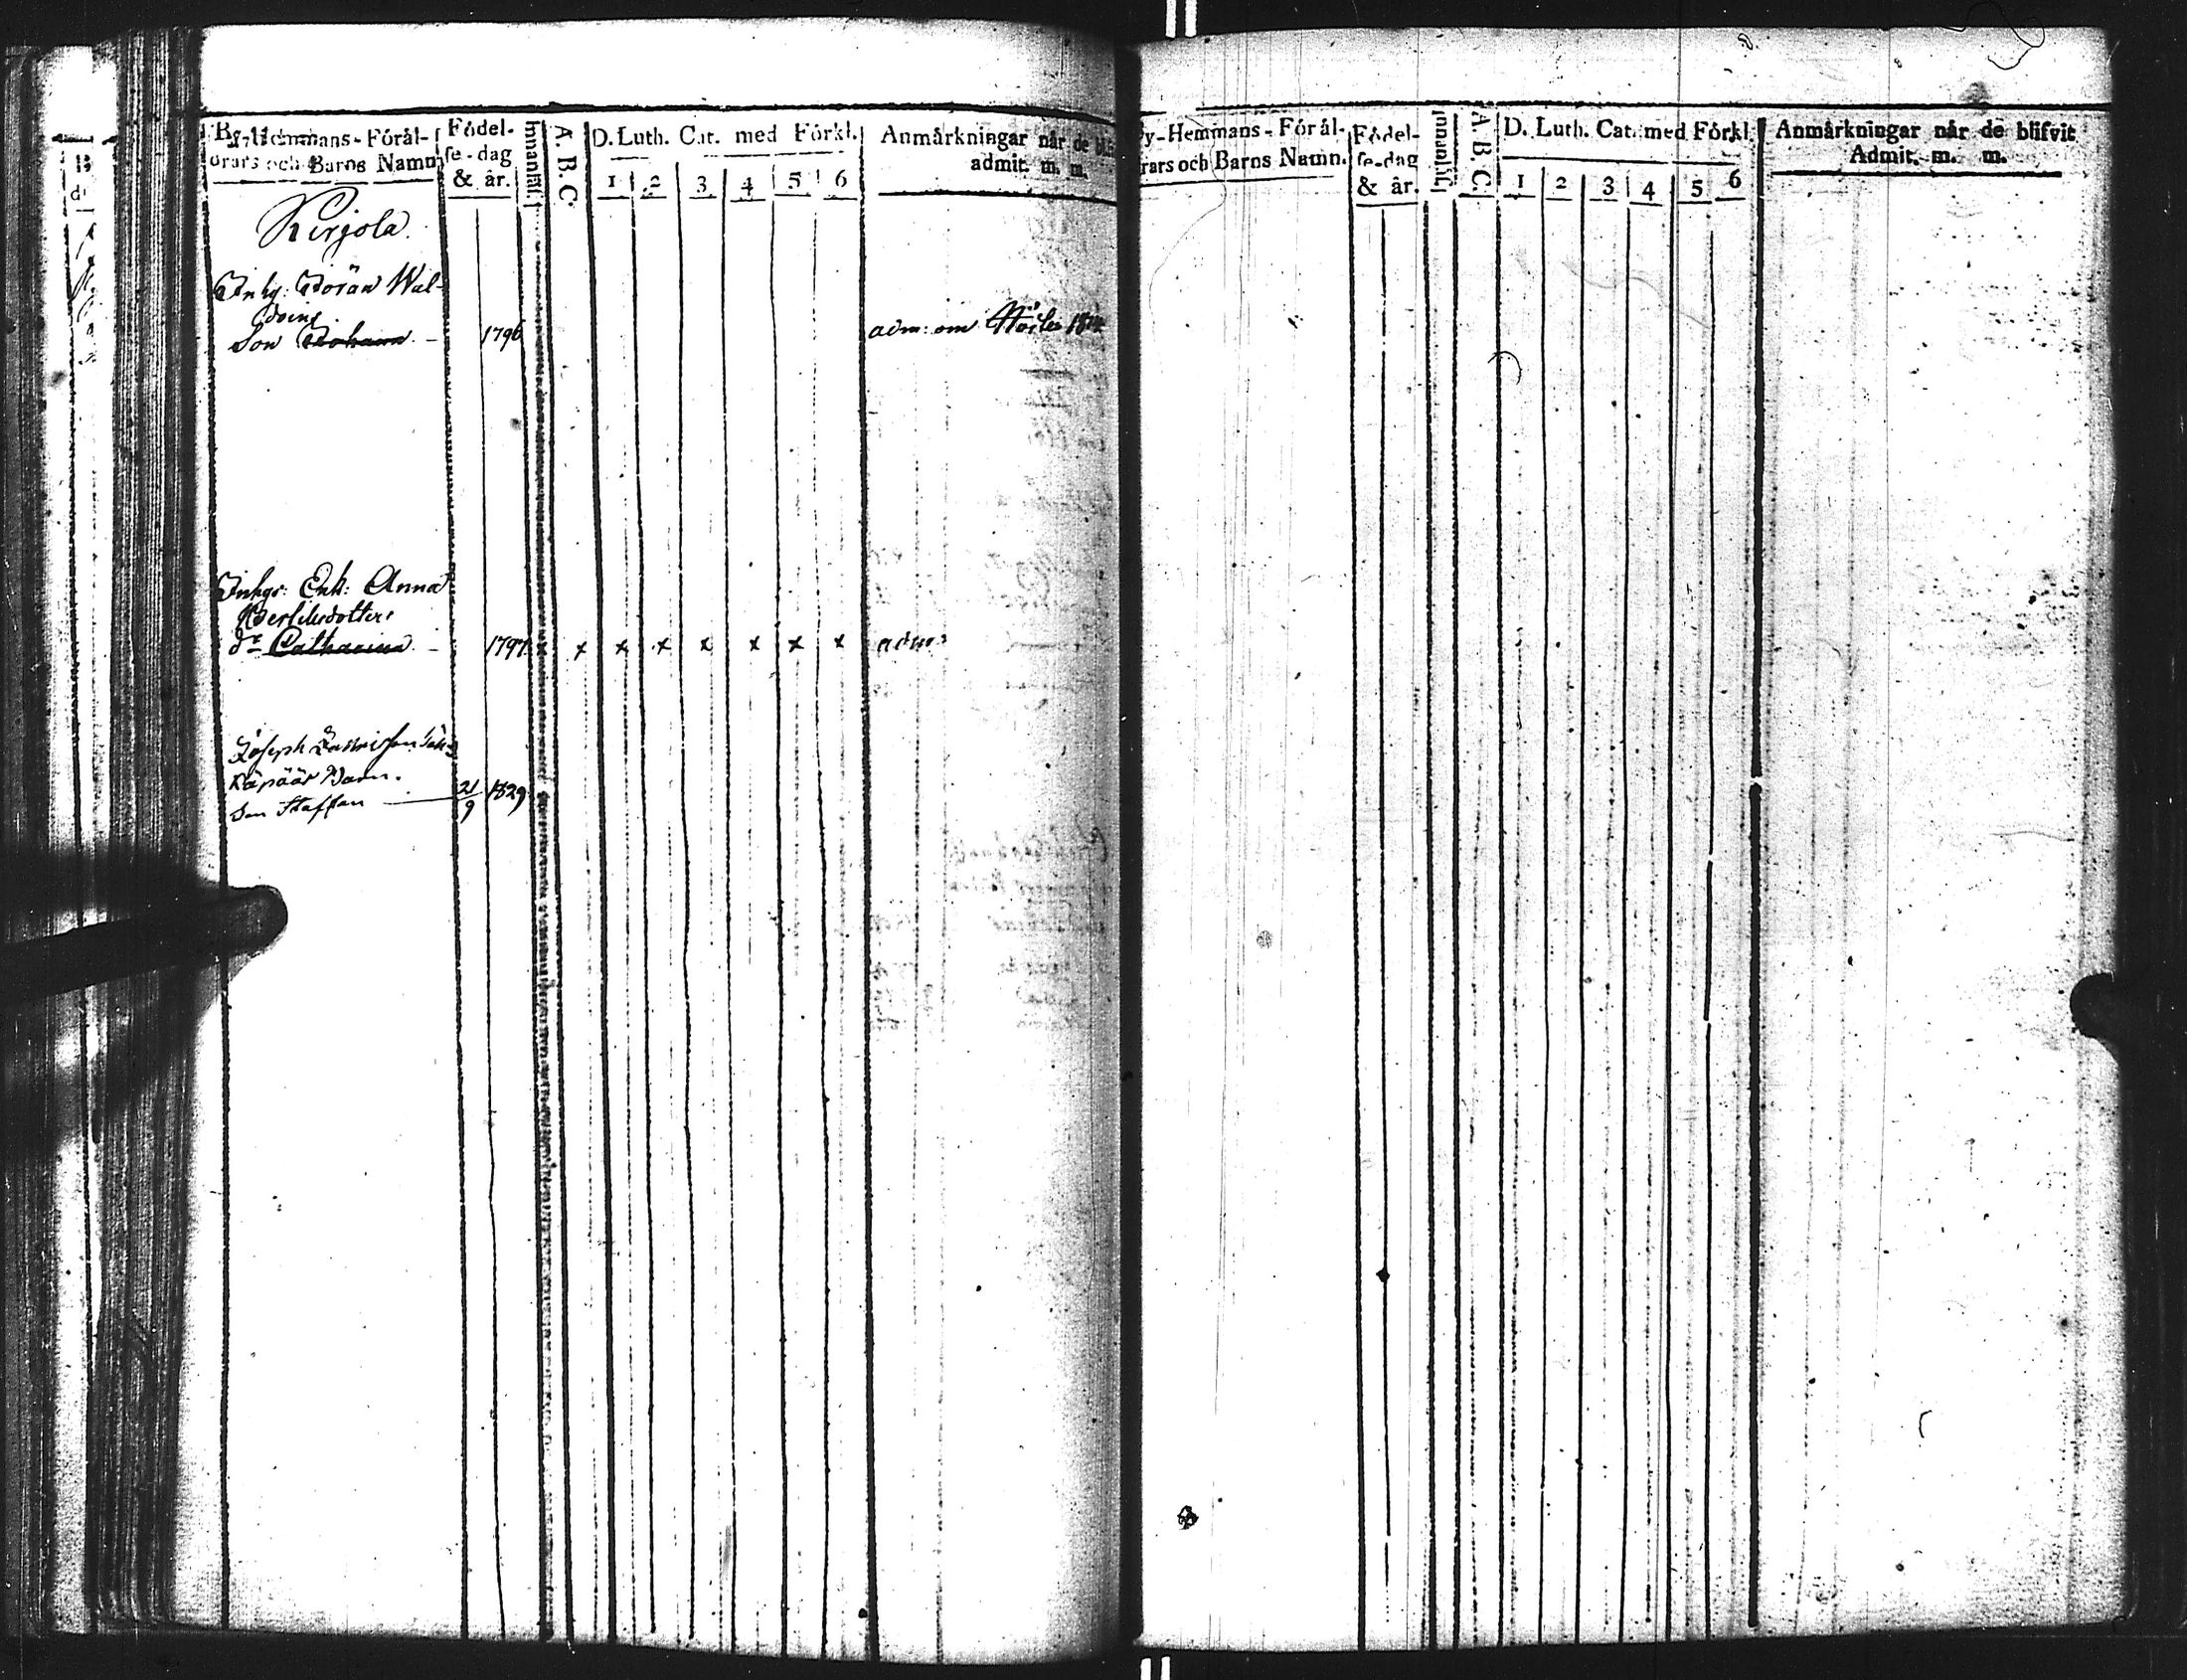 By-Hemmans-Föräl-
drars och Barns Namn
Födel-
se-dag
& år.
Innantill.
A. B. C.
D. Luth. Cat. med Förkl.
1 2 3 4 5 6
Anmärkningar når de
admit. m. m.
Kirjola.
Inhy: Jöran Wal-
Son Johann - 1796 adm: om 18
Inhys: Enk: Anna
Bertilsdotter
dr Catharina - 1797 x x x x x x x x adm:
Joseph
Käpäär Barn.
Son Staffan 21/9 1829
y-Hemmans-Föräl-
rars och Barns Namn.
Födel-
se-dag
& år.
Innantill.
A. B. C.
D. Luth. Cat. med Förkl.
1 2 3 4 5 6
Anmärkningar når de blifvit
Admit. m. m.